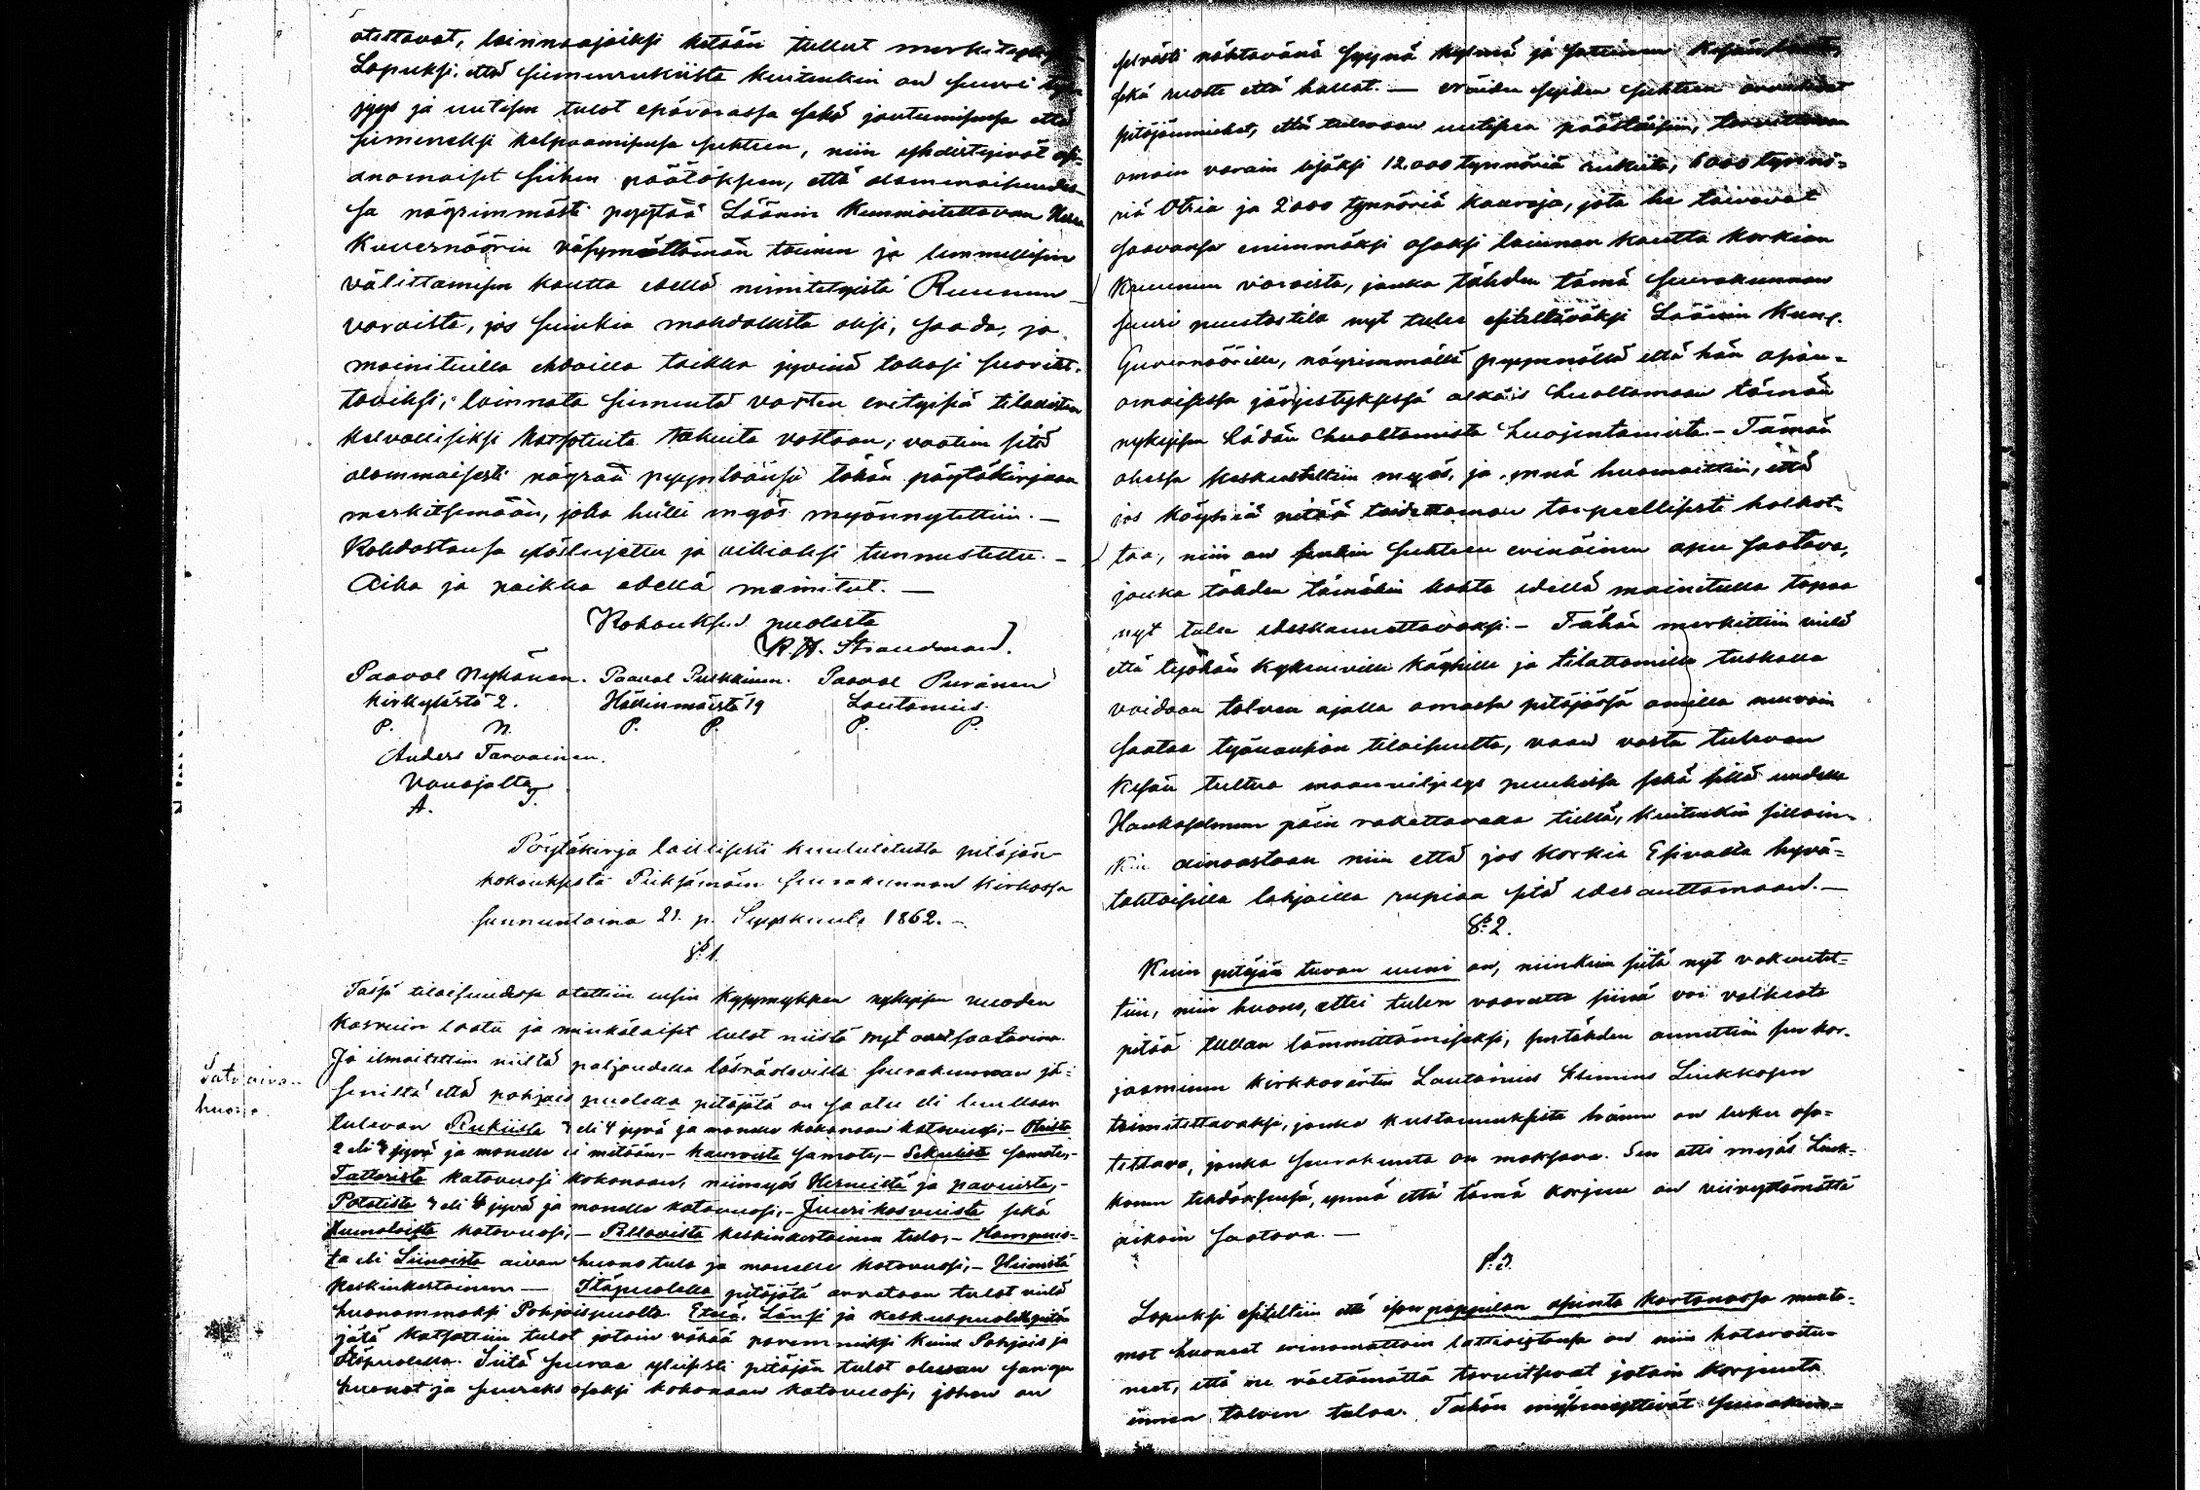 otettavat, lainnaajaiksi ketään tullut
Lopuksi, että siemenrukiista kuitenkin on suuri
jyys ja uutisen tulot epävarassa sekä joutumisessa että
siemeneksi kelpaamisessa suhteen, niin yhdistyivät asi-
anomaiset siihen päätöksen, että alamaisuudes-
sa nöyrimmästi pyytää Läänin Kunnioitettavan Herra
Kuvernöörin väsymättömän toimen ja lemmellisen
välittämisen kautta edellä nimitetyistä Ruunun
varoista, jos suinkin mahdollista olisi, saada, ja
mainituilla ehdoilla taikka jyvinä takasi suoritet-
taviksi, lainnata siementä vasten erityisiä tilallisten
kelvollisiksi katsotuita takuita vastaan; vaatien sitä
alammaisesti nöyrää pyyntöänsä tähän pöytäkirjaan
merkitsemään, joka heille myös myönnytettiin. —
Kohdastansa ylösluettu ja oikiaksi tunnustettu. —
Aika ja paikka edellä mainitut. —
Kokouksen puolesta
K. H. Strandman.
Paavol Nykänen. Paavol Puskkinen. Paavol Puranen
Kirkkylästä 2. Hällinmäestä 19 Lautamies.
P. N. P. P. P. P.
Anders Tarvainen.
Vanajalta
A. T.
Pöytäkirja laillisesti kuulutetusta pitäjän-
kokouksesta Pieksämäen seurakunnan kirkossa
sunnuntaina 21. p. Syyskuuta 1862. —
§ 1.
Tässä tilaisuudessa otettiin ensin kysymykseen nykyisen vuoden
kasvuin laatu ja minkälaiset tulot niistä nyt ovat saatavina.
Ja ilmoitettiin niiltä paljoudella läsnäolevilla seurakunnan jä-
seniltä että pohjois puolella pitäjätä on saatu eli luullaan
tulevan Rukiista 3 eli 4 jyvä ja monelle kokonaan katovuosi; — Ohrista
2 eli 3 jyvä ja monelle ei mitään; — Kauroista samate, — Sekulista samate, —
Tattarista katovuosi kokonaan, niinmyös Herneistä ja pavuista, —
Potatista 3 eli 4 jyvä ja monelle katovuosi, — Juurikasvuista sekä
Humaloista katovuosi; — Pellavista keskinkertainen tulo; — Hampuis-
ta eli Liinoista aivan huono tulo ja monelle katovuosi; — Heinistä
keskinkertainen — Itäpuolella pitäjätä arvataan tulot vielä
huonommaksi Pohjoispuolta. Etelä, Länsi ja keskuspuolella pitä
jätä katsottiin tulot jotain vähää paremmiksi kuin Pohjois ja
Itäpuolella. Siitä seuraa yleisesti pitäjän tulot olevan sangen
huonot ja suureksi osaksi kokonaan katovuosi, johon on
huono.
selvästi nähtävänä syynä kylmä ja satteinen kesän
sekä ruoste että hallat. —
pitäjänmiehet, että tulevaan uutiseen päästäisiin, tarvittavan
omain varain lisäksi 12.000 tynnöriä rukiita, 6000 tynnö-
riä Ohria ja 2000 tynnöriä kauroja, jota he toivovat
saavansa enimmäksi osaksi lainnan kautta Korkian
Kruunun varoista, jonka tähden tämä seurakunnan
suuri puutostila nyt tulee esiteltäväksi Läänin Kunn.
Guvernöörille, nöyrimmällä pyynnöllä että hän asian-
omaisessa järjestyksessä
nykyisen hädän huoltamista huojentamista. — Tämän
ohessa keskusteltiin myös, ja ynnä huomattiin, että
jos köyhiä pitää taidettaman tarpeellisesti holhot-
taa, niin on senkin suhteen erinäinen apu saatava,
jonka tähden tämäkin kohta edellä mainitulla tapaa
nyt tulee edeskannettavaksi. — Tähän merkittiin vielä
että työhön kykeneville köyhille ja tilattomille tuskalla
voidaan talven ajalla omassa pitäjässä omilla neuvoin
saataa työnansion tilaisuutta, vaan vasta tulevan
kesän tultua maanviljelys puuhissa sekä sillä uudella
Hankasalmen päin rakettavalla tiellä, kuitenkin silloin-
kin ainoastaan niin että jos Korkia Esivalta hyvä-
tahtoisilla lahjoilla rupiaa sitä edesauttamaan. —
§ 2.
Kuin pitäjän tuvan uuni on, niinkuin siitä nyt vakuutet-
tiin, niin huono, ettei tulen vaaratta siinä voi valkiata
pitää tuvan lämmittämiseksi, sentähden annettiin sen kor-
jaaminen kirkkovärtin Lautamies Klemens Liukkosen
toimitettavaksi, jonka kustannuksista hänen on lasku osa-
tettava, jonka seurakunta on maksava. Sen otti myös Liuk-
konen tehdäksensä, ynnä että tämä korjuu on viivyttämättä
aikoin saatava. —
§ 3.
Lopuksi esiteltiin että isonpappilan asinto kartanossa muuta-
mat huoneet erinomattain lattioistansa on niin hataroitu-
neet, että ne välttämättä tarvitsevat jotain korjuuta
ennen talven tuloa. Tähän myönnyttivät seurakun-